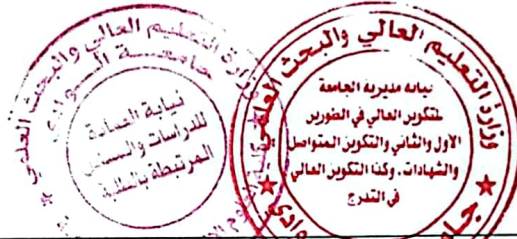 وزارة التعليم العالي والبحث العلمي
جامعة الوادي
نيابة العمادة
للدراسات والمسائل
المرتبطة بالطلبة
وزارة التعليم العالي والبحث العلمي
نيابه مديرية الجامعة
لتكوين العالي في الطورين
الأول والثاني والتكوين المتواصل
والشهادات، وكذا التكوين العالي
في التدرج